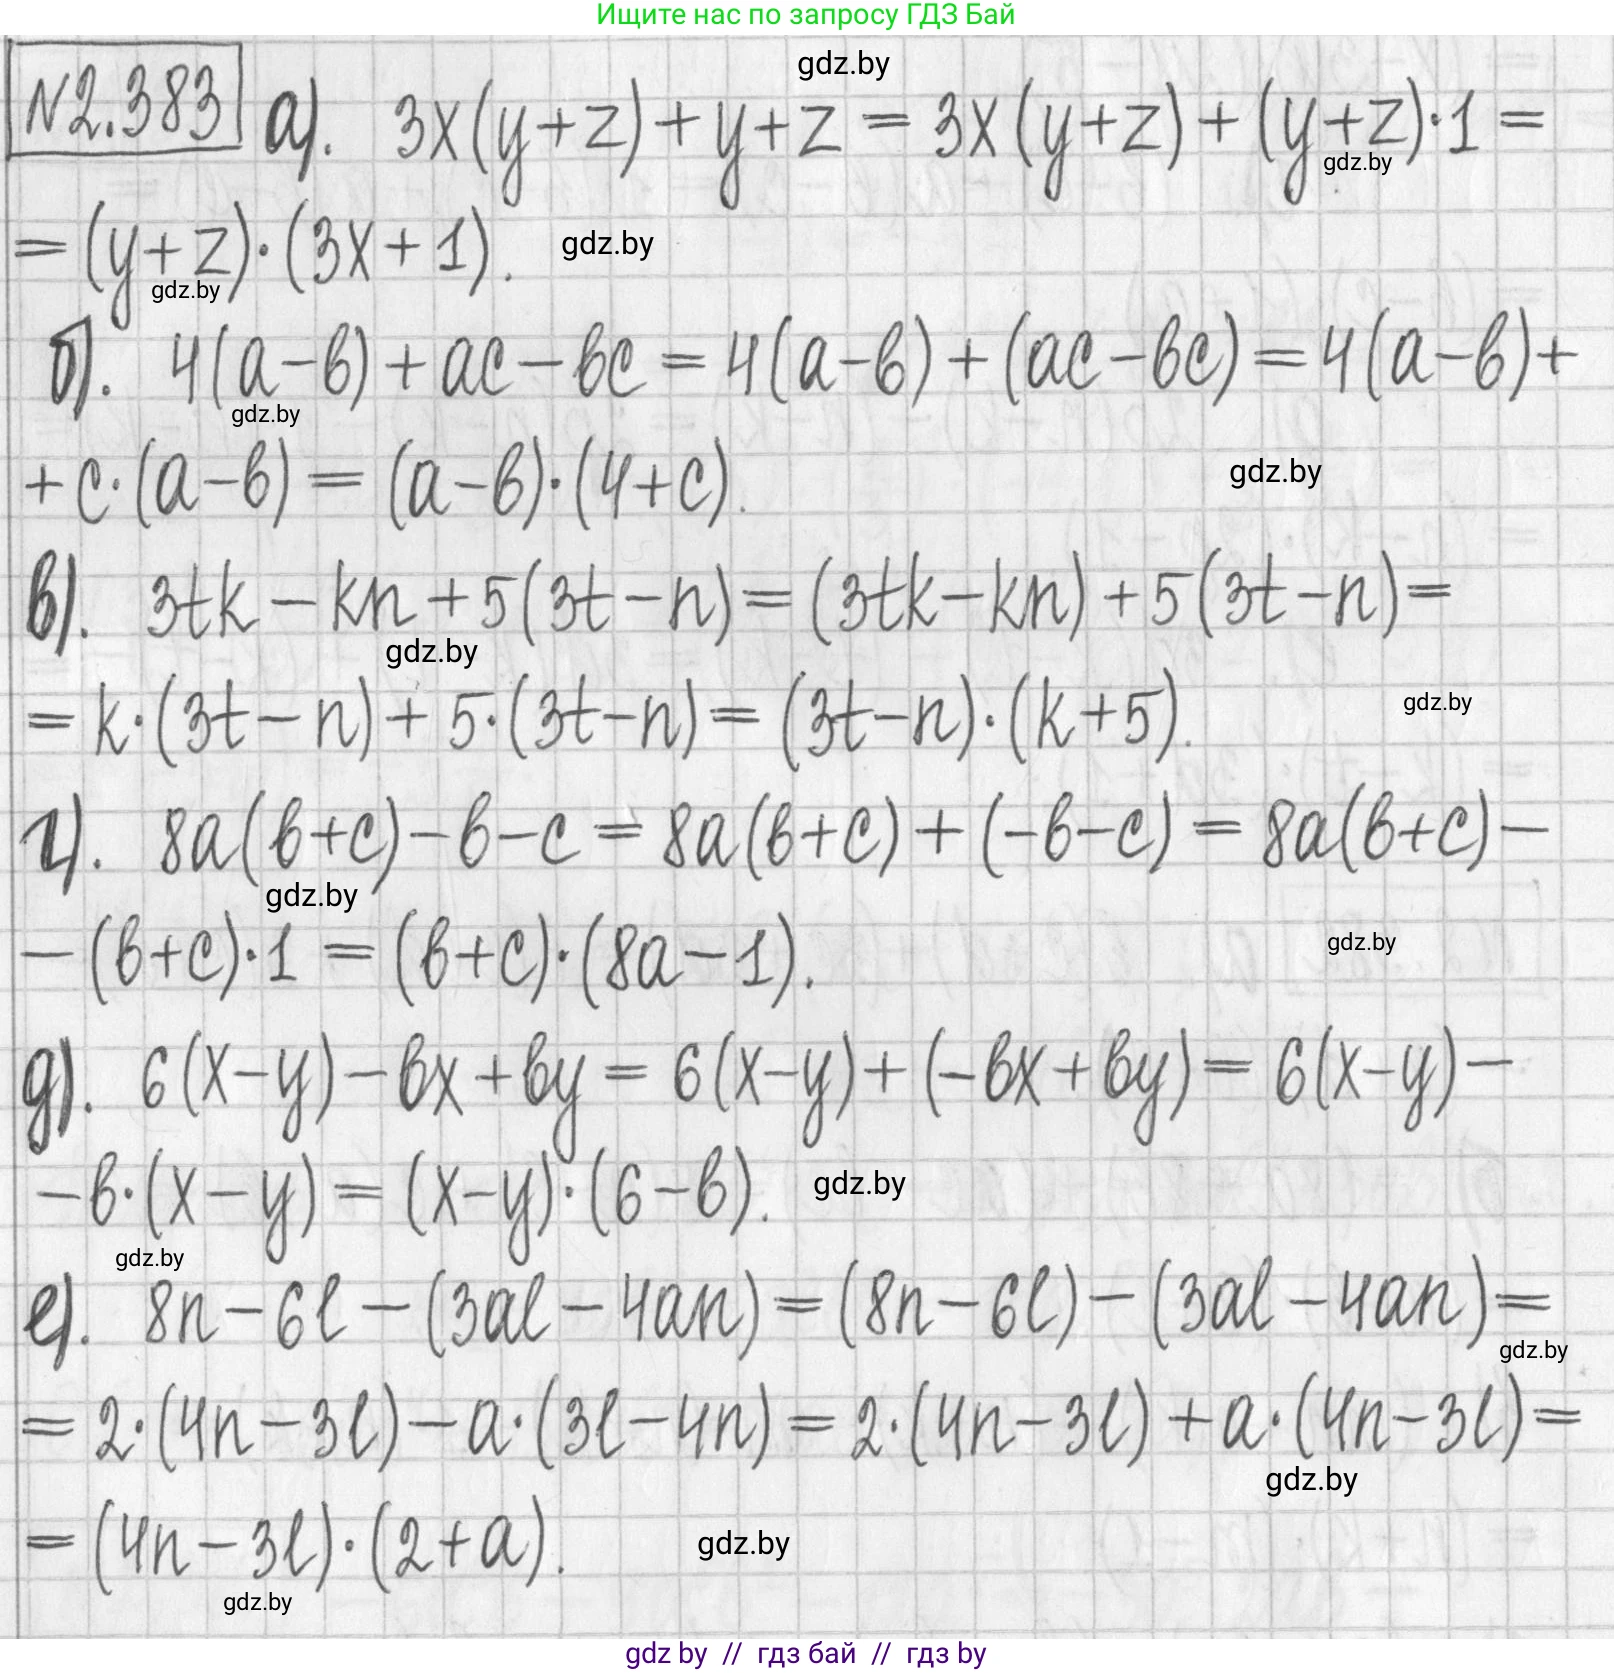 Ищите нас по запросу ГДЗ Бай
gdz.by
№2.383 а). 3x(y+z)+y+z = 3x(y+z)+(y+z)·1 =
gdz.by
= (y+z)·(3x+1). gdz.by
gdz.by
б). 4(a-b)+ac-bc = 4(a-b)+(ac-bc) = 4(a-b)+
gdz.by
+c·(a-b) = (a-b)·(4+c). gdz.by
в). 3tk-kn+5(3t-n) = (3tk-kn)+5(3t-n) =
gdz.by
= k·(3t-n)+5·(3t-n) = (3t-n)·(k+5). gdz.by
г). 8a(b+c)-b-c = 8a(b+c)+(-b-c) = 8a(b+c)-
gdz.by
-(b+c)·1 = (b+c)·(8a-1). gdz.by
д). 6(x-y)-bx+by = 6(x-y)+(-bx+by) = 6(x-y)-
-b·(x-y) = (x-y)·(6-b). gdz.by
gdz.by
е). 8n-6l-(3al-4an) = (8n-6l)-(3al-4an) =
gdz.by
= 2·(4n-3l)-a·(3l-4n) = 2·(4n-3l)+a·(4n-3l) =
gdz.by
= (4n-3l)·(2+a). gdz.by
gdz.by
gdz by // гдз бай // гдз by